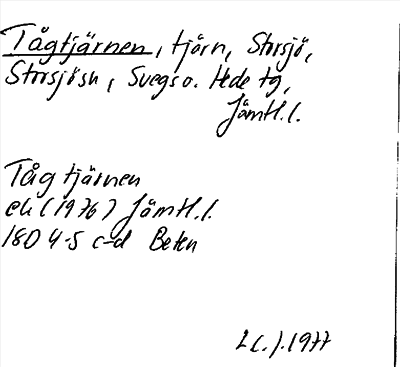 Tågtjärnen, tjärn, Storsjö,
Storsjö sn, Svegs o. Hede tg,
Jämtl.l.
Tågtjärnen
ek (1976) Jämtl.l.
180 4-5 c-d Beten
1977